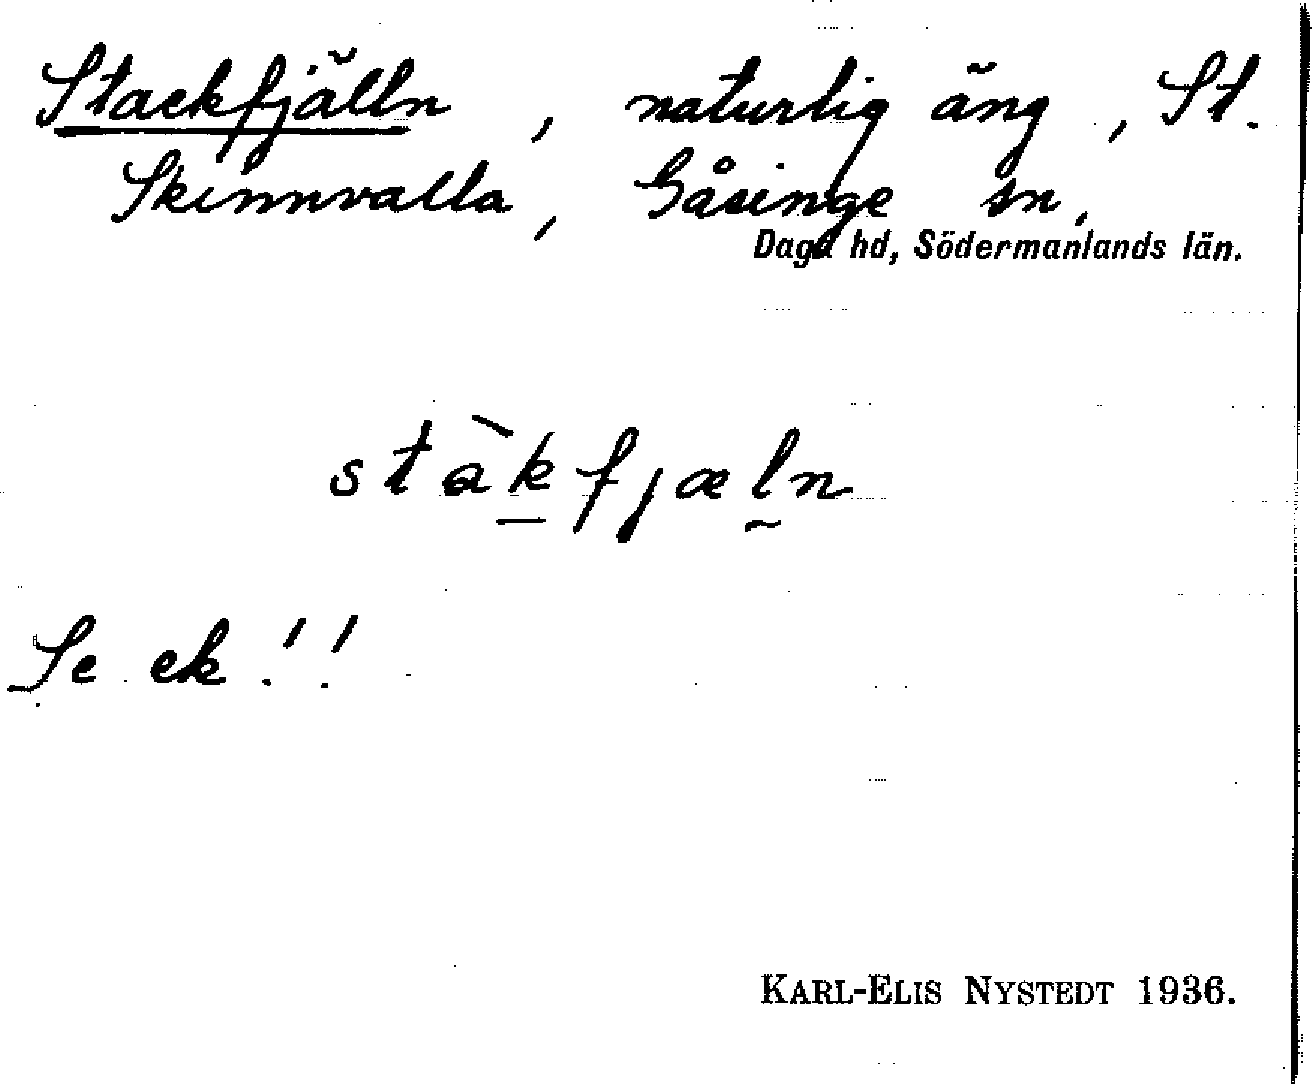 Stackfjälln, naturlig äng, St.
Skinnvalla, Gåsinge sn,
Daga hd, Södermanlands län.
stàkfjæln
Se ek!!
KARL-ELIS NYSTEDT 1936.